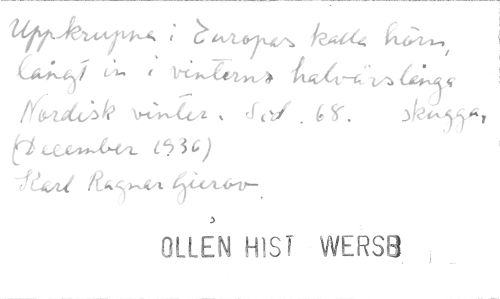 Uppkrupna i Europas kalla hörn,
långt in i vinterns halvårslånga
Nordisk vinter. Sid. 68. skugga,
(December 1936)
Karl Ragnar Gierow.
OLLÉN HIST WERSB